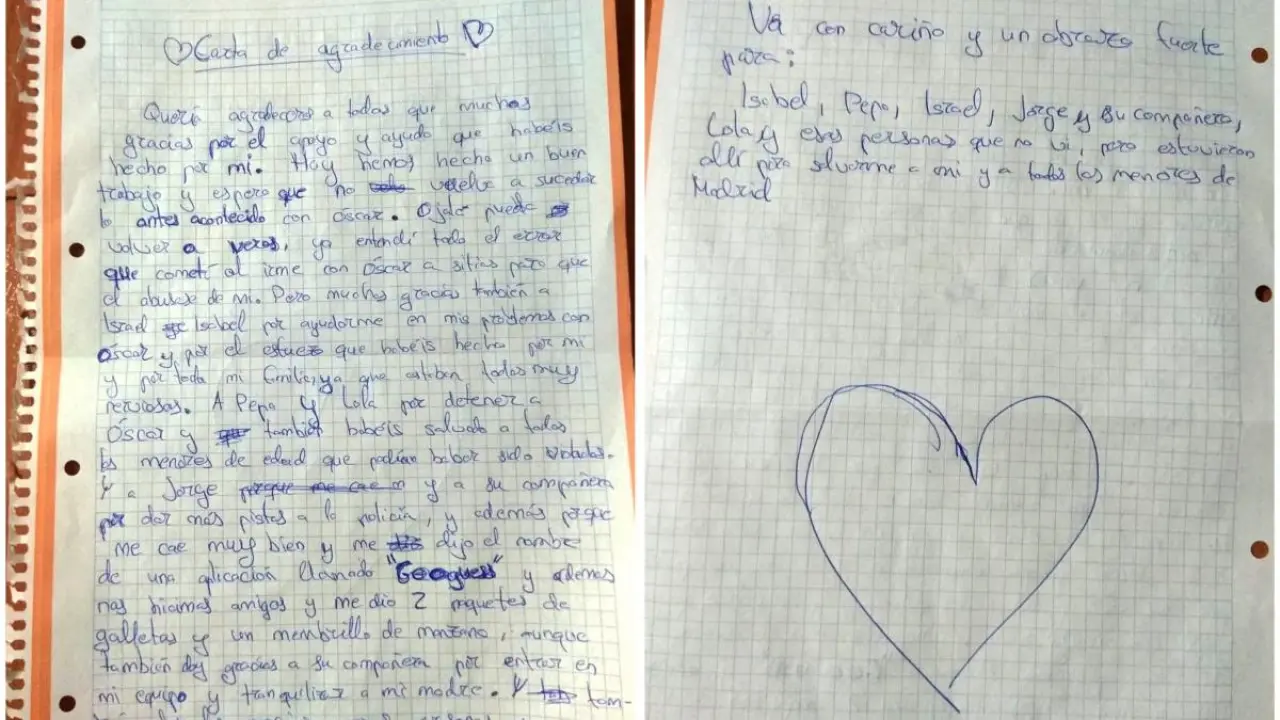 Carta de agradecimiento
Quería agradeceros a todos que muchas
gracias por el apoyo y ayuda que habéis
hecho por mi. Hoy hemos hecho un buen
trabajo y espero que no vuelva a suceder
lo antes acontecido con Óscar. Ojalá pueda
volver a veros, ya entendí todo el error
que cometí al irme con Óscar a sitios para que
el abusase de mi. Pero muchas gracias también a
Israel Isabel por ayudarme en mis problemas con
Óscar y por el que habéis hecho por mi
y por toda mi ya que estaban todos muy
nerviosos. A Pepa y Lola por detener a
Óscar y también habéis salvado a todos
los menores de edad que podían haber sido
Y a Jorge porque me cae y a su compañera
por dar más pistas a la policía, y además porque
me cae muy bien y me dijo el nombre
de una aplicación llamada "Geoguess" y además
nos hicimos amigos y me dio 2 paquetes de
galletas y un membrillo de manzana, aunque
también doy gracias a su compañera por entrar en
mi equipo y tranquilizar a mi madre. Y tam-
Va con cariño y un abrazo fuerte
para:
Isabel, Pepa, Israel, Jorge y su compañera,
Lola y esas personas que no vi, pero estuvieron
allí para salvarme a mi y a todos los menores de
Madrid